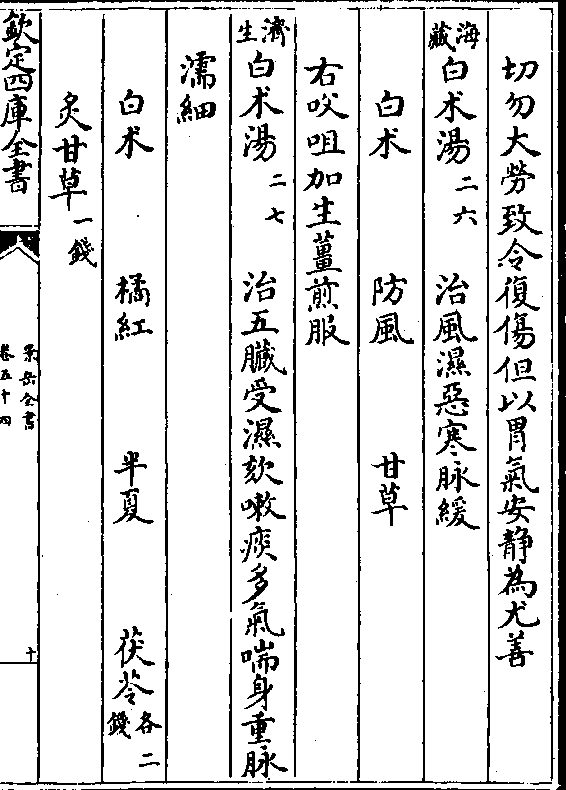 切勿大勞致令復傷但以胃氣安靜為尤善
海藏白术湯二六　治風濕惡寒脉緩
白术　防風　甘草
右㕮咀加生薑煎服
濟生白术湯二七　治五臟受濕欬嗽痰多氣喘身重脉
濡細
白术　橘紅　半夏　茯苓各二錢
炙甘草一錢
欽定四庫全書
景岳全書
卷五十四
十